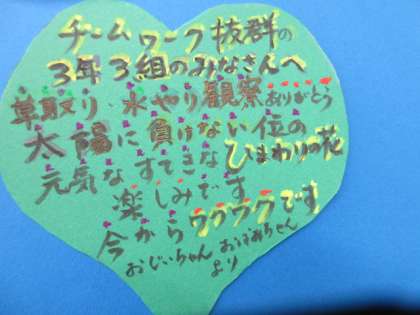 チームワーク抜群の
3年3組のみなさんへ
草取り 水やり 観察ありがとう
太陽に負けない位の
元気なすてきなひまわりの花
楽しみです
今からワクワクです
おじいちゃん おばあちゃん
より